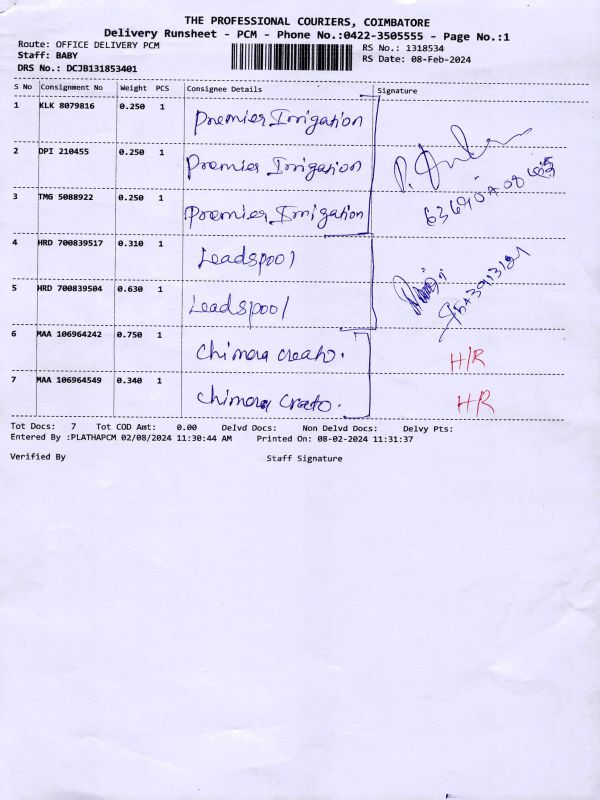 THE PROFESSIONAL COURIERS, COIMBATORE
Delivery Runsheet - PCM - Phone No.:0422-3505555 - Page No.:1
Route: OFFICE DELIVERY PCM
RS No.: 1318534
Staff: BABY
RS Date: 08-Feb-2024
DRS No.: DCJB131853401
S No Consignment No Weight PCS Consignee Details Signature
1 KLK 8079816 0.250 1 Premier Irrigation
2 DPI 210455 0.250 1 Premier Irrigation
3 TMG 5088922 0.250 1 Premier Irrigation
4 HRD 700839517 0.310 1 Leadspool
5 HRD 700839504 0.630 1 Leadspool
6 MAA 106964242 0.750 1 chimera creato. H/R
7 MAA 106964549 0.340 1 chimera creato. H/R
Tot Docs: 7 Tot COD Amt: 0.00 Delvd Docs: Non Delvd Docs: Delvy Pts:
Entered By :PLATHAPCM 02/08/2024 11:30:44 AM Printed On: 08-02-2024 11:31:37
Verified By Staff Signature